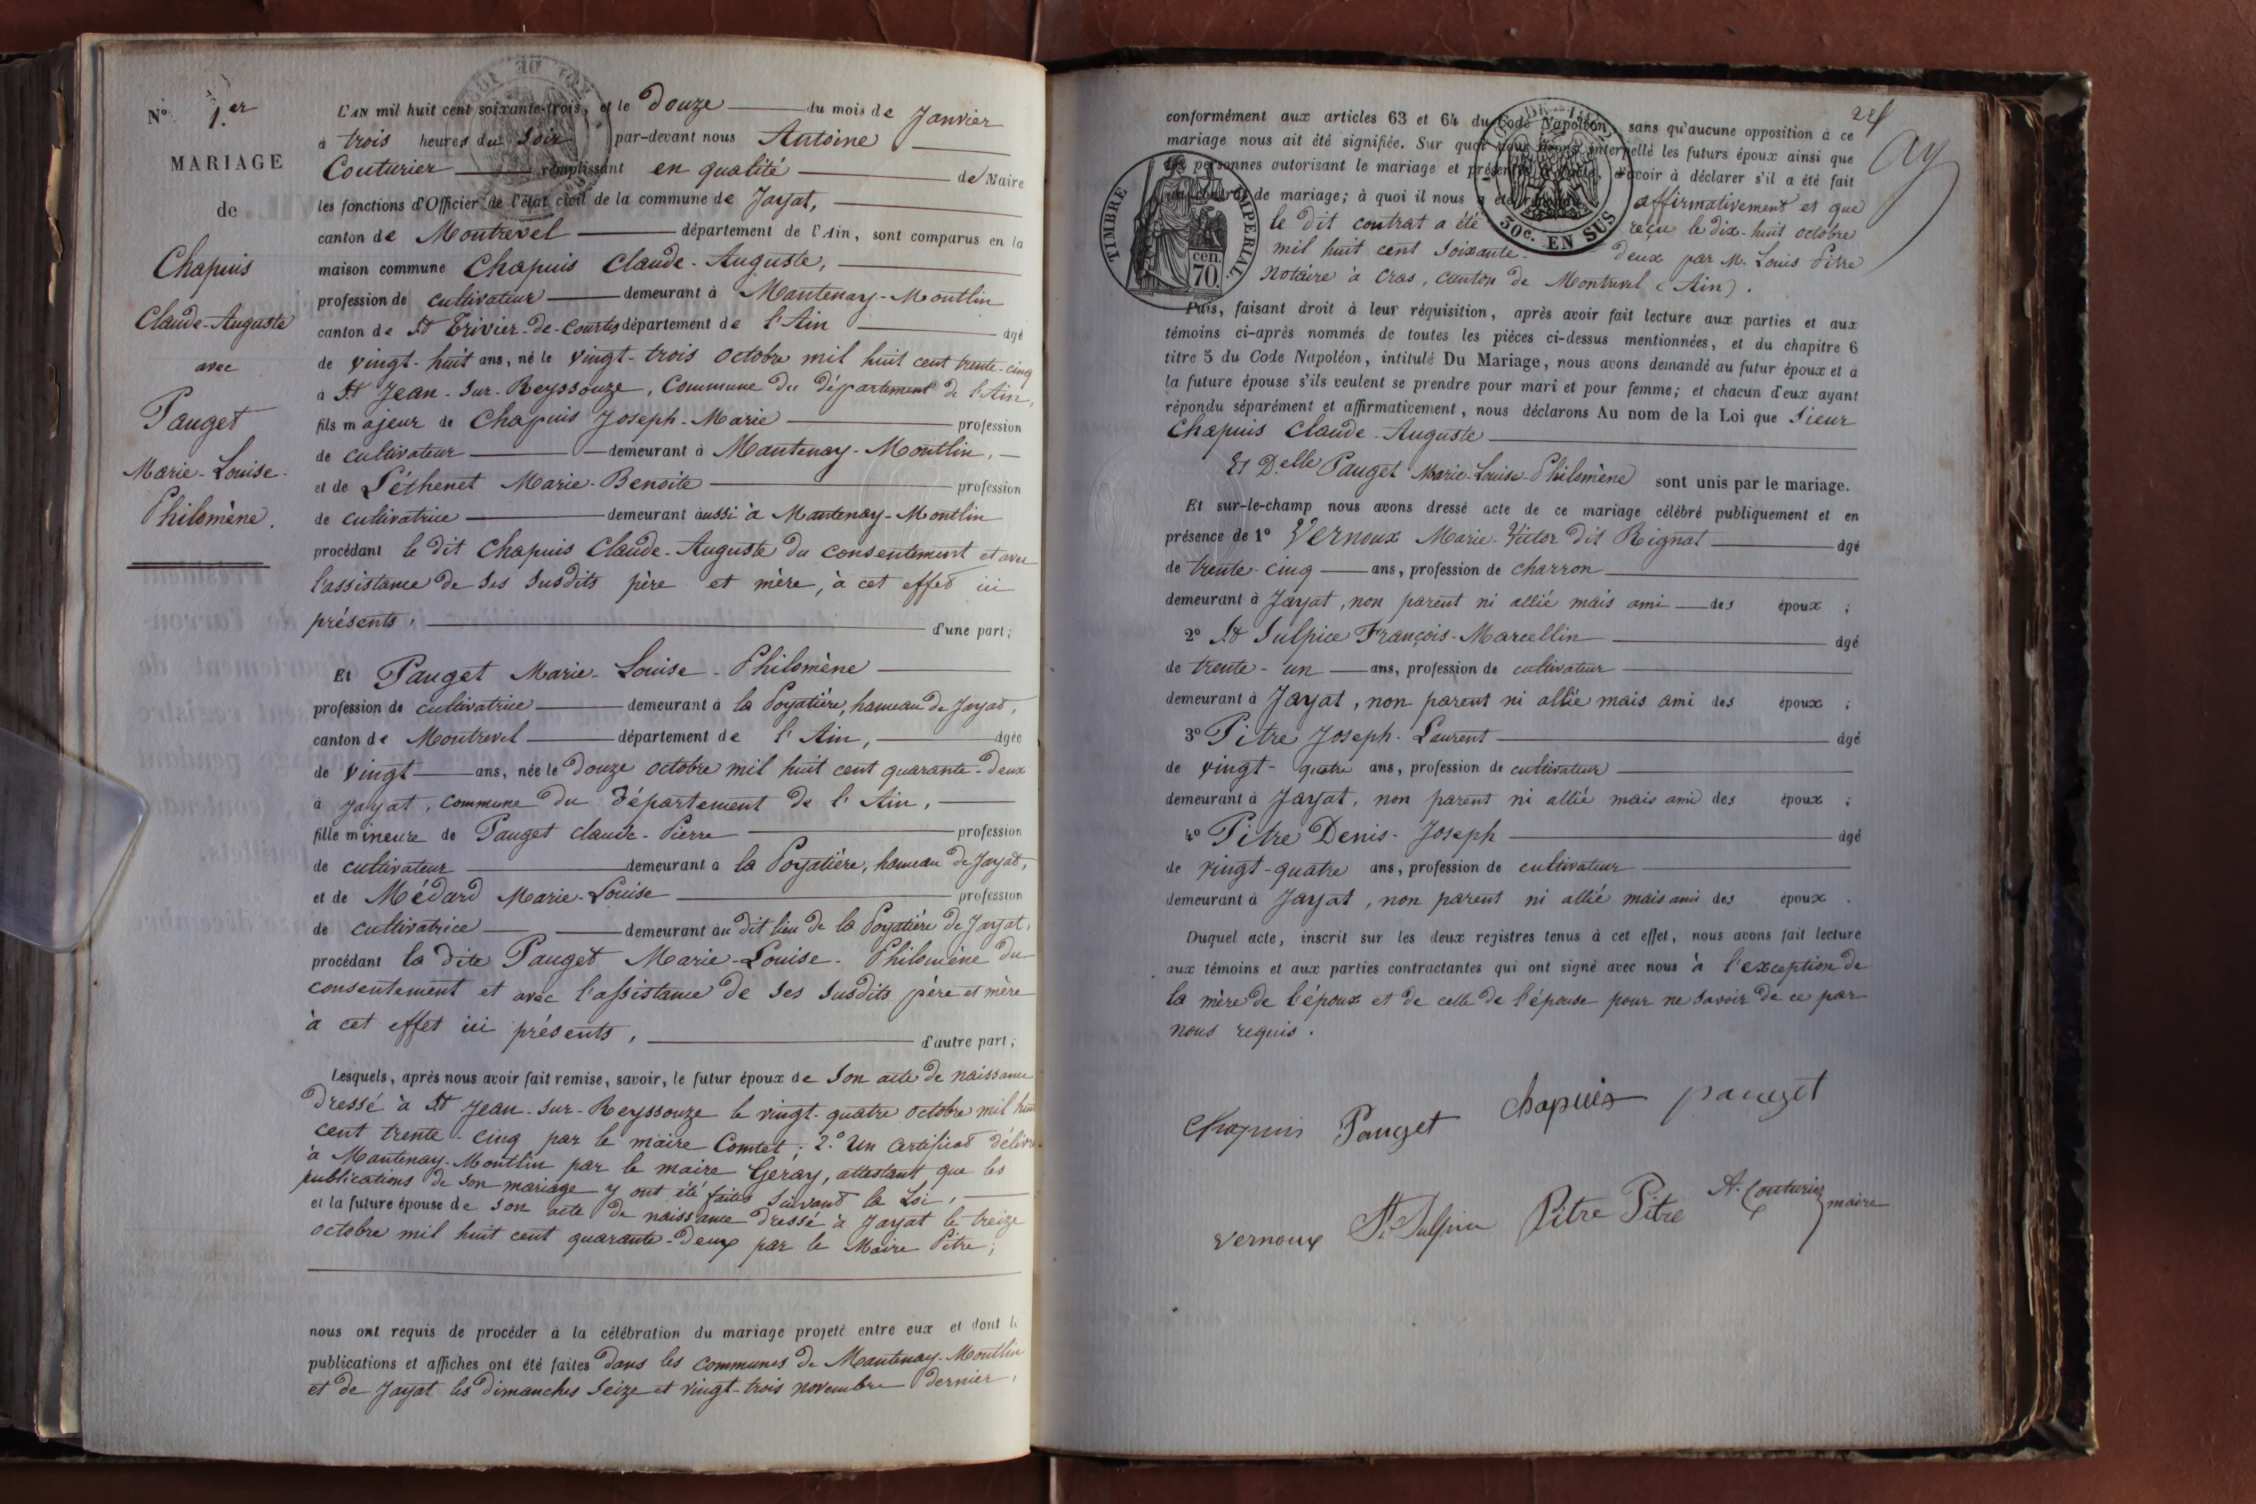 N° 1.er
MARIAGE
de
Chapuis
Claude-Auguste
avec
Pauget
Marie-Louise-
Philomène.
L'AN mil huit cent soixante-trois, et le Douze du mois de Janvier
à trois heures du Soir par-devant nous Antoine
Couturier remplissant en qualité de Maire
les fonctions d'Officier de l'état civil de la commune de Jayat,
canton de Montrevel département de l'Ain, sont comparus en la
maison commune Chapuis Claude-Auguste,
profession de cultivateur demeurant à Mantenay-Montlin
canton de St Trivier-de-Courtes département de l'Ain âgé
de vingt-huit ans, né le vingt-trois octobre mil huit cent trente-cinq
à St Jean-sur-Reyssouze, Commune du département de l'Ain,
fils majeur de Chapuis Joseph-Marie profession
de cultivateur demeurant à Mantenay-Montlin,
et de Péthenet Marie-Benoite profession
de cultivatrice demeurant aussi à Mantenay-Montlin
procédant le dit Chapuis Claude-Auguste du consentement et avec
l'assistance de ses susdits père et mère, à cet effet ici
présents, d'une part;
Et Pauget Marie-Louise-Philomène
profession de cultivatrice demeurant à la Poyatière, hameau de Jayat,
canton de Montrevel département de l'Ain, âgée
de vingt ans, née le douze octobre mil huit cent quarante-deux
à Jayat, commune du Département de l'Ain,
fille mineure de Pauget Claude-Pierre profession
de cultivateur demeurant à la Poyatière, hameau de Jayat,
et de Médard Marie-Louise profession
de cultivatrice demeurant au dit lieu de la Poyatière de Jayat,
procédant la dite Pauget Marie-Louise-Philomène du
consentement et avec l'assistance de ses susdits père et mère
à cet effet ici présents, d'autre part;
Lesquels, après nous avoir fait remise, savoir, le futur époux de son acte de naissance
dressé à St Jean-sur-Reyssouze le vingt-quatre octobre mil huit
cent trente-cinq par le maire Comtet; 2.° Un certificat délivré
à Mantenay-Montlin par le maire Geray, attestant que les
publications de son mariage y ont été faites suivant la Loi,
et la future épouse de son acte de naissance dressé à Jayat le treize
octobre mil huit cent quarante-deux par le Maire Pitre;
nous ont requis de procéder à la célébration du mariage projeté entre eux et dont le
publications et affiches ont été faites dans les communes de Mantenay-Montlin
et de Jayat les dimanches seize et vingt-trois novembre dernier,
conformément aux articles 63 et 64 du Code Napoléon, sans qu'aucune opposition à ce
mariage nous ait été signifiée. Sur quoi nous avons interpellé les futurs époux ainsi que
les personnes autorisant le mariage et présentes à l'acte, d'avoir à déclarer s'il a été fait
un contrat de mariage; à quoi il nous a été répondu affirmativement et que
le dit contrat a été reçu le dix-huit octobre
mil huit cent soixante-deux par M. Louis Pitre
notaire à Cras, canton de Montrevel (Ain).
TIMBRE IMPERIAL
cen. 70.
50c. EN SUS
Puis, faisant droit à leur réquisition, après avoir fait lecture aux parties et aux
témoins ci-après nommés de toutes les pièces ci-dessus mentionnées, et du chapitre 6
titre 5 du Code Napoléon, intitulé Du Mariage, nous avons demandé au futur époux et à
la future épouse s'ils veulent se prendre pour mari et pour femme; et chacun d'eux ayant
répondu séparément et affirmativement, nous déclarons Au nom de la Loi que Sieur
Chapuis Claude-Auguste
Et D.elle Pauget Marie-Louise-Philomène sont unis par le mariage.
Et sur-le-champ nous avons dressé acte de ce mariage célébré publiquement et en
présence de 1° Vernoux Marie-Victor dit Rignat âgé
de trente-cinq ans, profession de charron
demeurant à Jayat, non parent ni allié mais ami des époux ;
2° St Sulpice François-Marcellin âgé
de trente-un ans, profession de cultivateur
demeurant à Jayat, non parent ni allié mais ami des époux ;
3° Pitre Joseph-Laurent âgé
de vingt-quatre ans, profession de cultivateur
demeurant à Jayat, non parent ni allié mais ami des époux ;
4° Pitre Denis-Joseph âgé
de vingt-quatre ans, profession de cultivateur
demeurant à Jayat, non parent ni allié mais ami des époux .
Duquel acte, inscrit sur les deux registres tenus à cet effet, nous avons fait lecture
aux témoins et aux parties contractantes qui ont signé avec nous à l'exception de
la mère de l'époux et de celle de l'épouse pour ne savoir de ce par
nous requis.
Chapuis Pauget Chapuis pauget
Vernoux St Sulpice Pitre Pitre A. Couturier maire